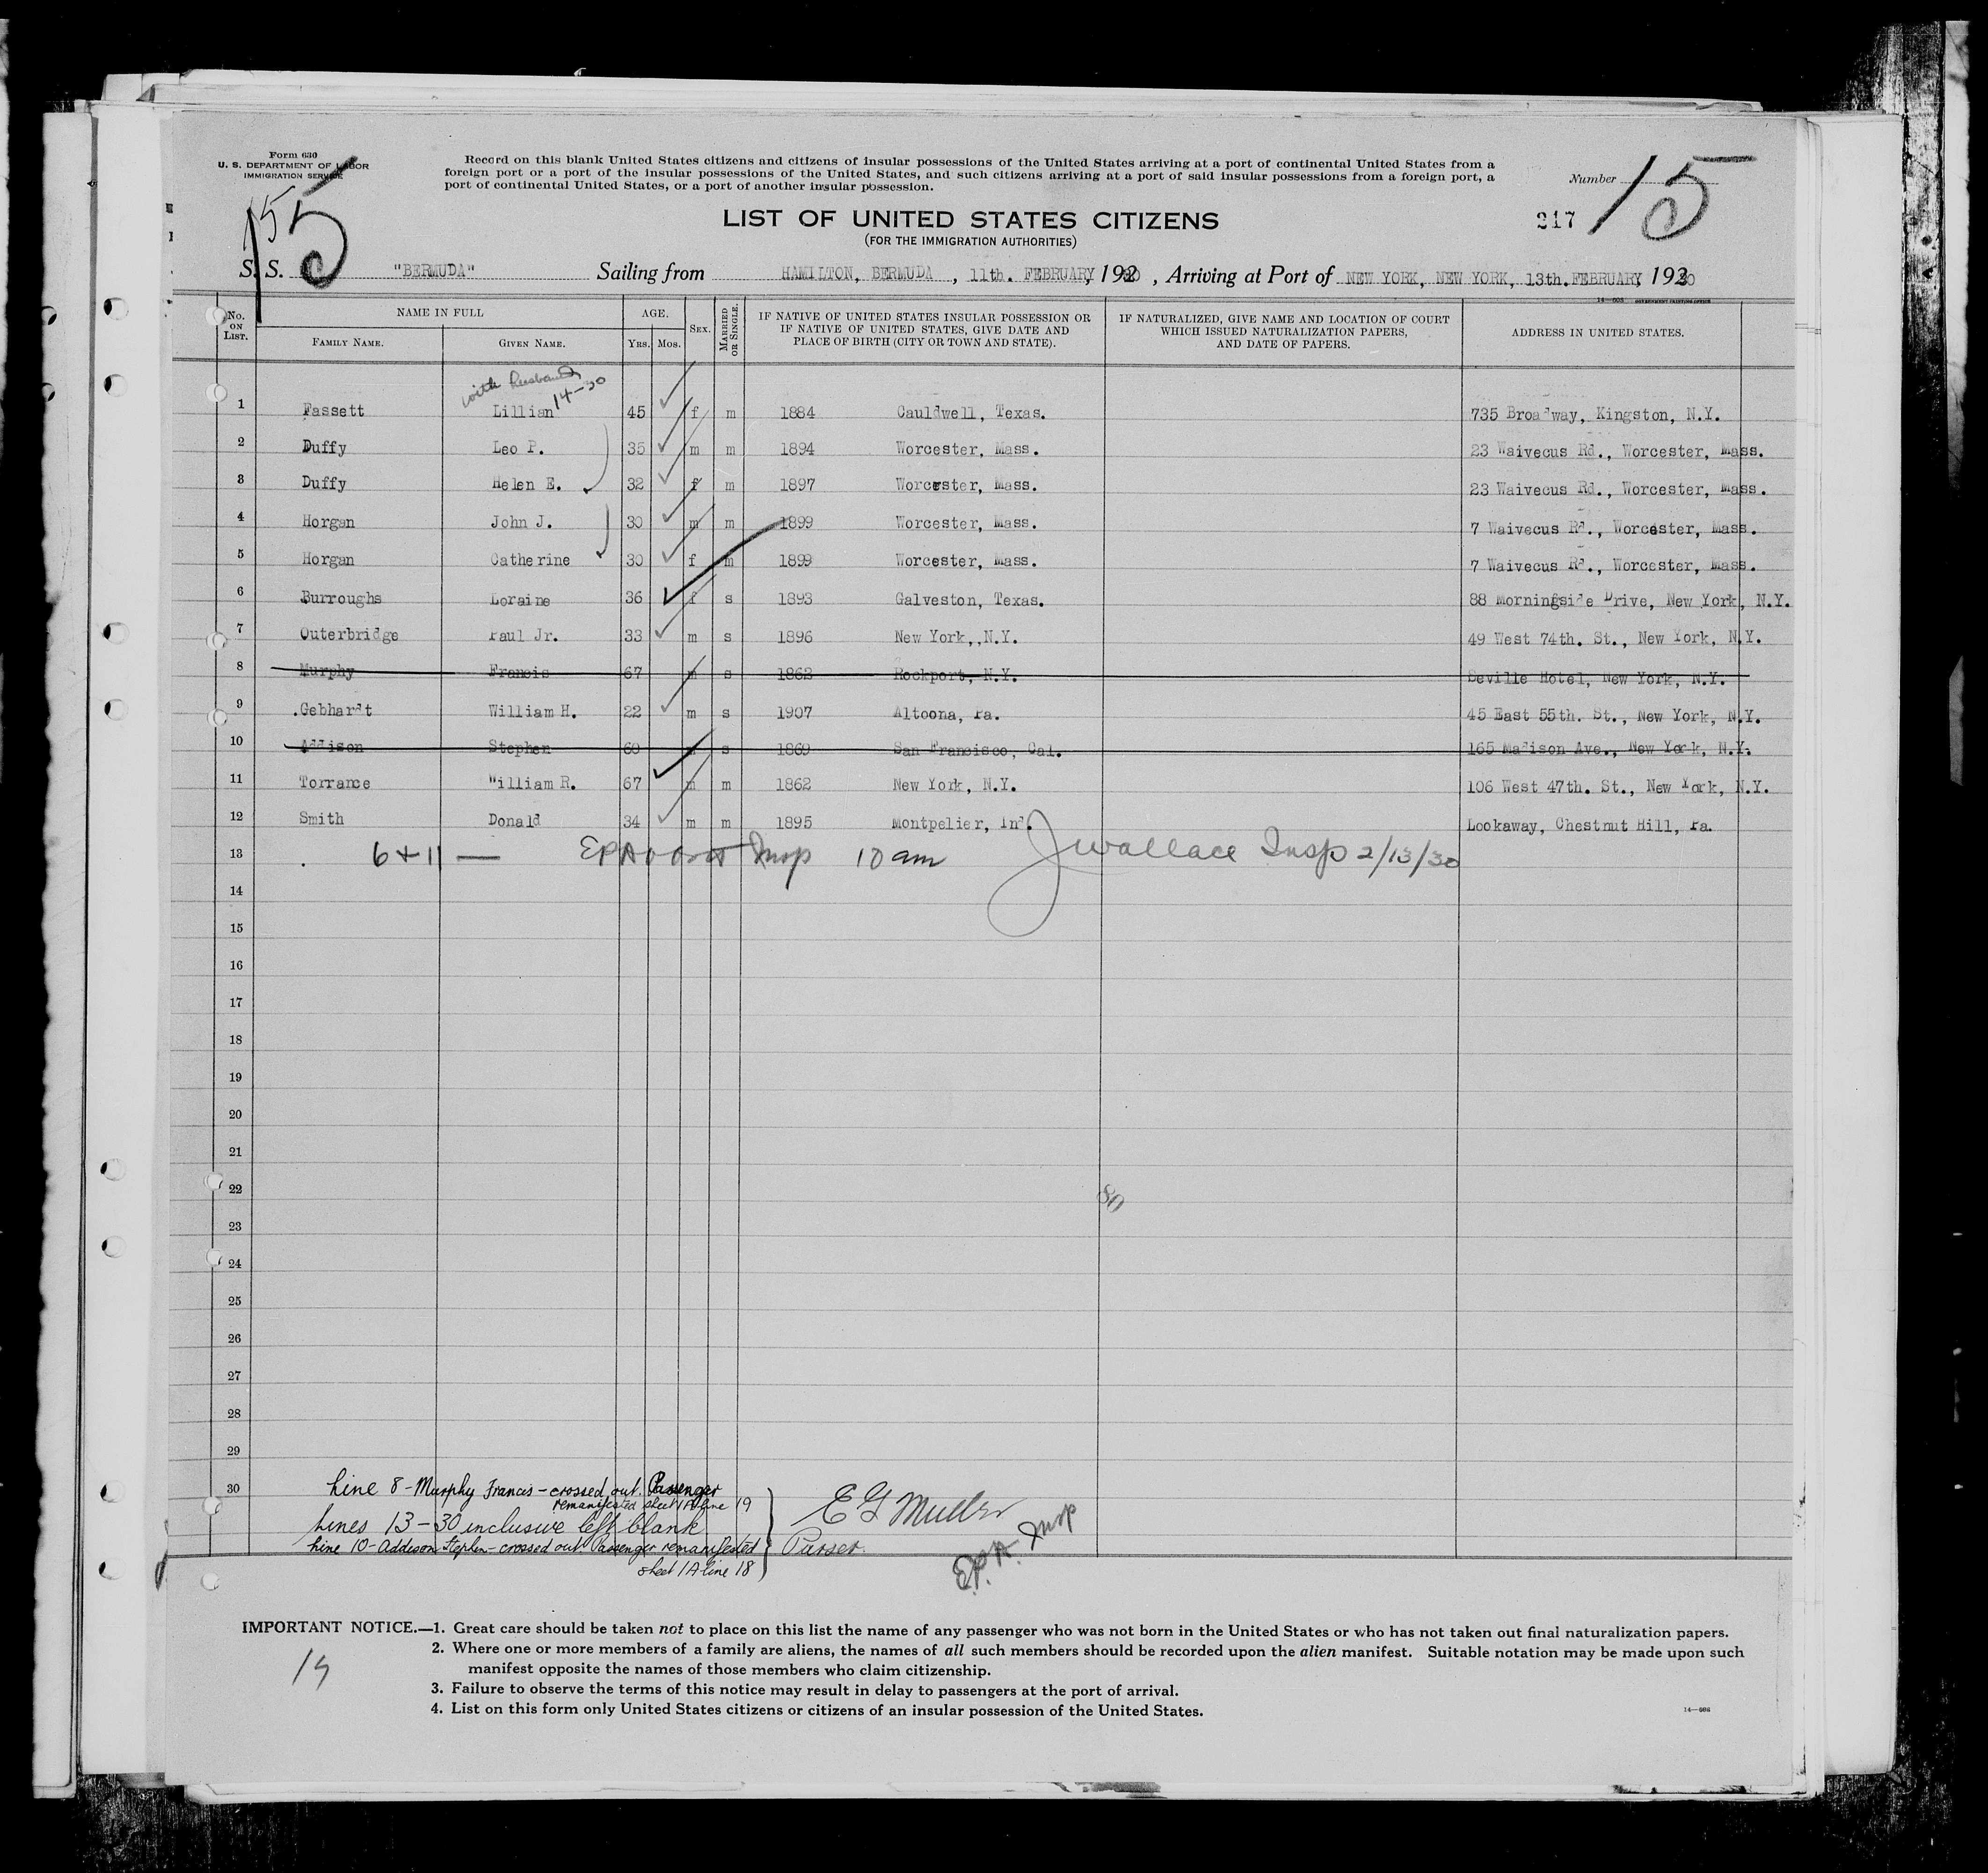 Form 630
U. S. DEPARTMENT OF LABOR
IMMIGRATION SERVICE
Record on this blank United States citizens and citizens of insular possessions of the United States arriving at a port of continental United States from a
foreign port or a port of the insular possessions of the United States, and such citizens arriving at a port of said insular possessions from a foreign port, a
port of continental United States, or a port of another insular possession.
Number 15
15
5
217
LIST OF UNITED STATES CITIZENS
(FOR THE IMMIGRATION AUTHORITIES)
S. S. "BERMUDA" Sailing from HAMILTON, BERMUDA , 11th. FEBRUARY, 1930 , Arriving at Port of NEW YORK, NEW YORK, 13th. FEBRUARY, 1930
14—608 GOVERNMENT PRINTING OFFICE
No. ON LIST. NAME IN FULL AGE. SEX. MARRIED OR SINGLE. IF NATIVE OF UNITED STATES INSULAR POSSESSION OR IF NATIVE OF UNITED STATES, GIVE DATE AND PLACE OF BIRTH (CITY OR TOWN AND STATE). IF NATURALIZED, GIVE NAME AND LOCATION OF COURT WHICH ISSUED NATURALIZATION PAPERS, AND DATE OF PAPERS. ADDRESS IN UNITED STATES.
FAMILY NAME. GIVEN NAME. YRS. MOS.
with husband 14-30
1 Fassett Lillian 45 f m 1884 Cauldwell, Texas. 735 Broadway, Kingston, N.Y.
2 Duffy Leo P. 35 m m 1894 Worcester, Mass. 23 Waivecus Rd., Worcester, Mass.
3 Duffy Helen E. 32 f m 1897 Worcester, Mass. 23 Waivecus Rd., Worcester, Mass.
4 Horgan John J. 30 m m 1899 Worcester, Mass. 7 Waivecus Rd., Worcester, Mass.
5 Horgan Catherine 30 f m 1899 Worcester, Mass. 7 Waivecus Rd., Worcester, Mass.
6 Burroughs Loraine 36 f s 1893 Galveston, Texas. 88 Morningside Drive, New York, N.Y.
7 Outerbridge Paul Jr. 33 m s 1896 New York,,N.Y. 49 West 74th. St., New York, N.Y.
8 Murphy Francis 67 m s 1862 Rockport, N.Y. Seville Hotel, New York, N.Y.
9 .Gebhardt William H. 22 m s 1907 Altoona, Pa. 45 East 55th. St., New York, N.Y.
10 Addison Stephen 60 m s 1869 San Francisco, Cal. 165 Madison Ave., New York, N.Y.
11 Torrance William R. 67 m m 1862 New York, N.Y. 106 West 47th. St., New York, N.Y.
12 Smith Donald 34 m m 1895 Montpelier, Ind. Lookaway, Chestnut Hill, Pa.
13 6 + 11 — Insp 10 am J Wallace Insp 2/13/30
14
15
16
17
18
19
20
21
22
23
24
25
26
27
28
29
30
Line 8 - Murphy Francis - crossed out. Passenger
remanifested sheet 1A line 19
Lines 13-30 inclusive left blank
Line 10 - Addison Stephen - crossed out. Passenger remanifested
sheet 1A line 18
E G Muller
Purser.
E.P.A. Insp
IMPORTANT NOTICE.—1. Great care should be taken not to place on this list the name of any passenger who was not born in the United States or who has not taken out final naturalization papers.
2. Where one or more members of a family are aliens, the names of all such members should be recorded upon the alien manifest. Suitable notation may be made upon such
manifest opposite the names of those members who claim citizenship.
3. Failure to observe the terms of this notice may result in delay to passengers at the port of arrival.
4. List on this form only United States citizens or citizens of an insular possession of the United States.
14—608